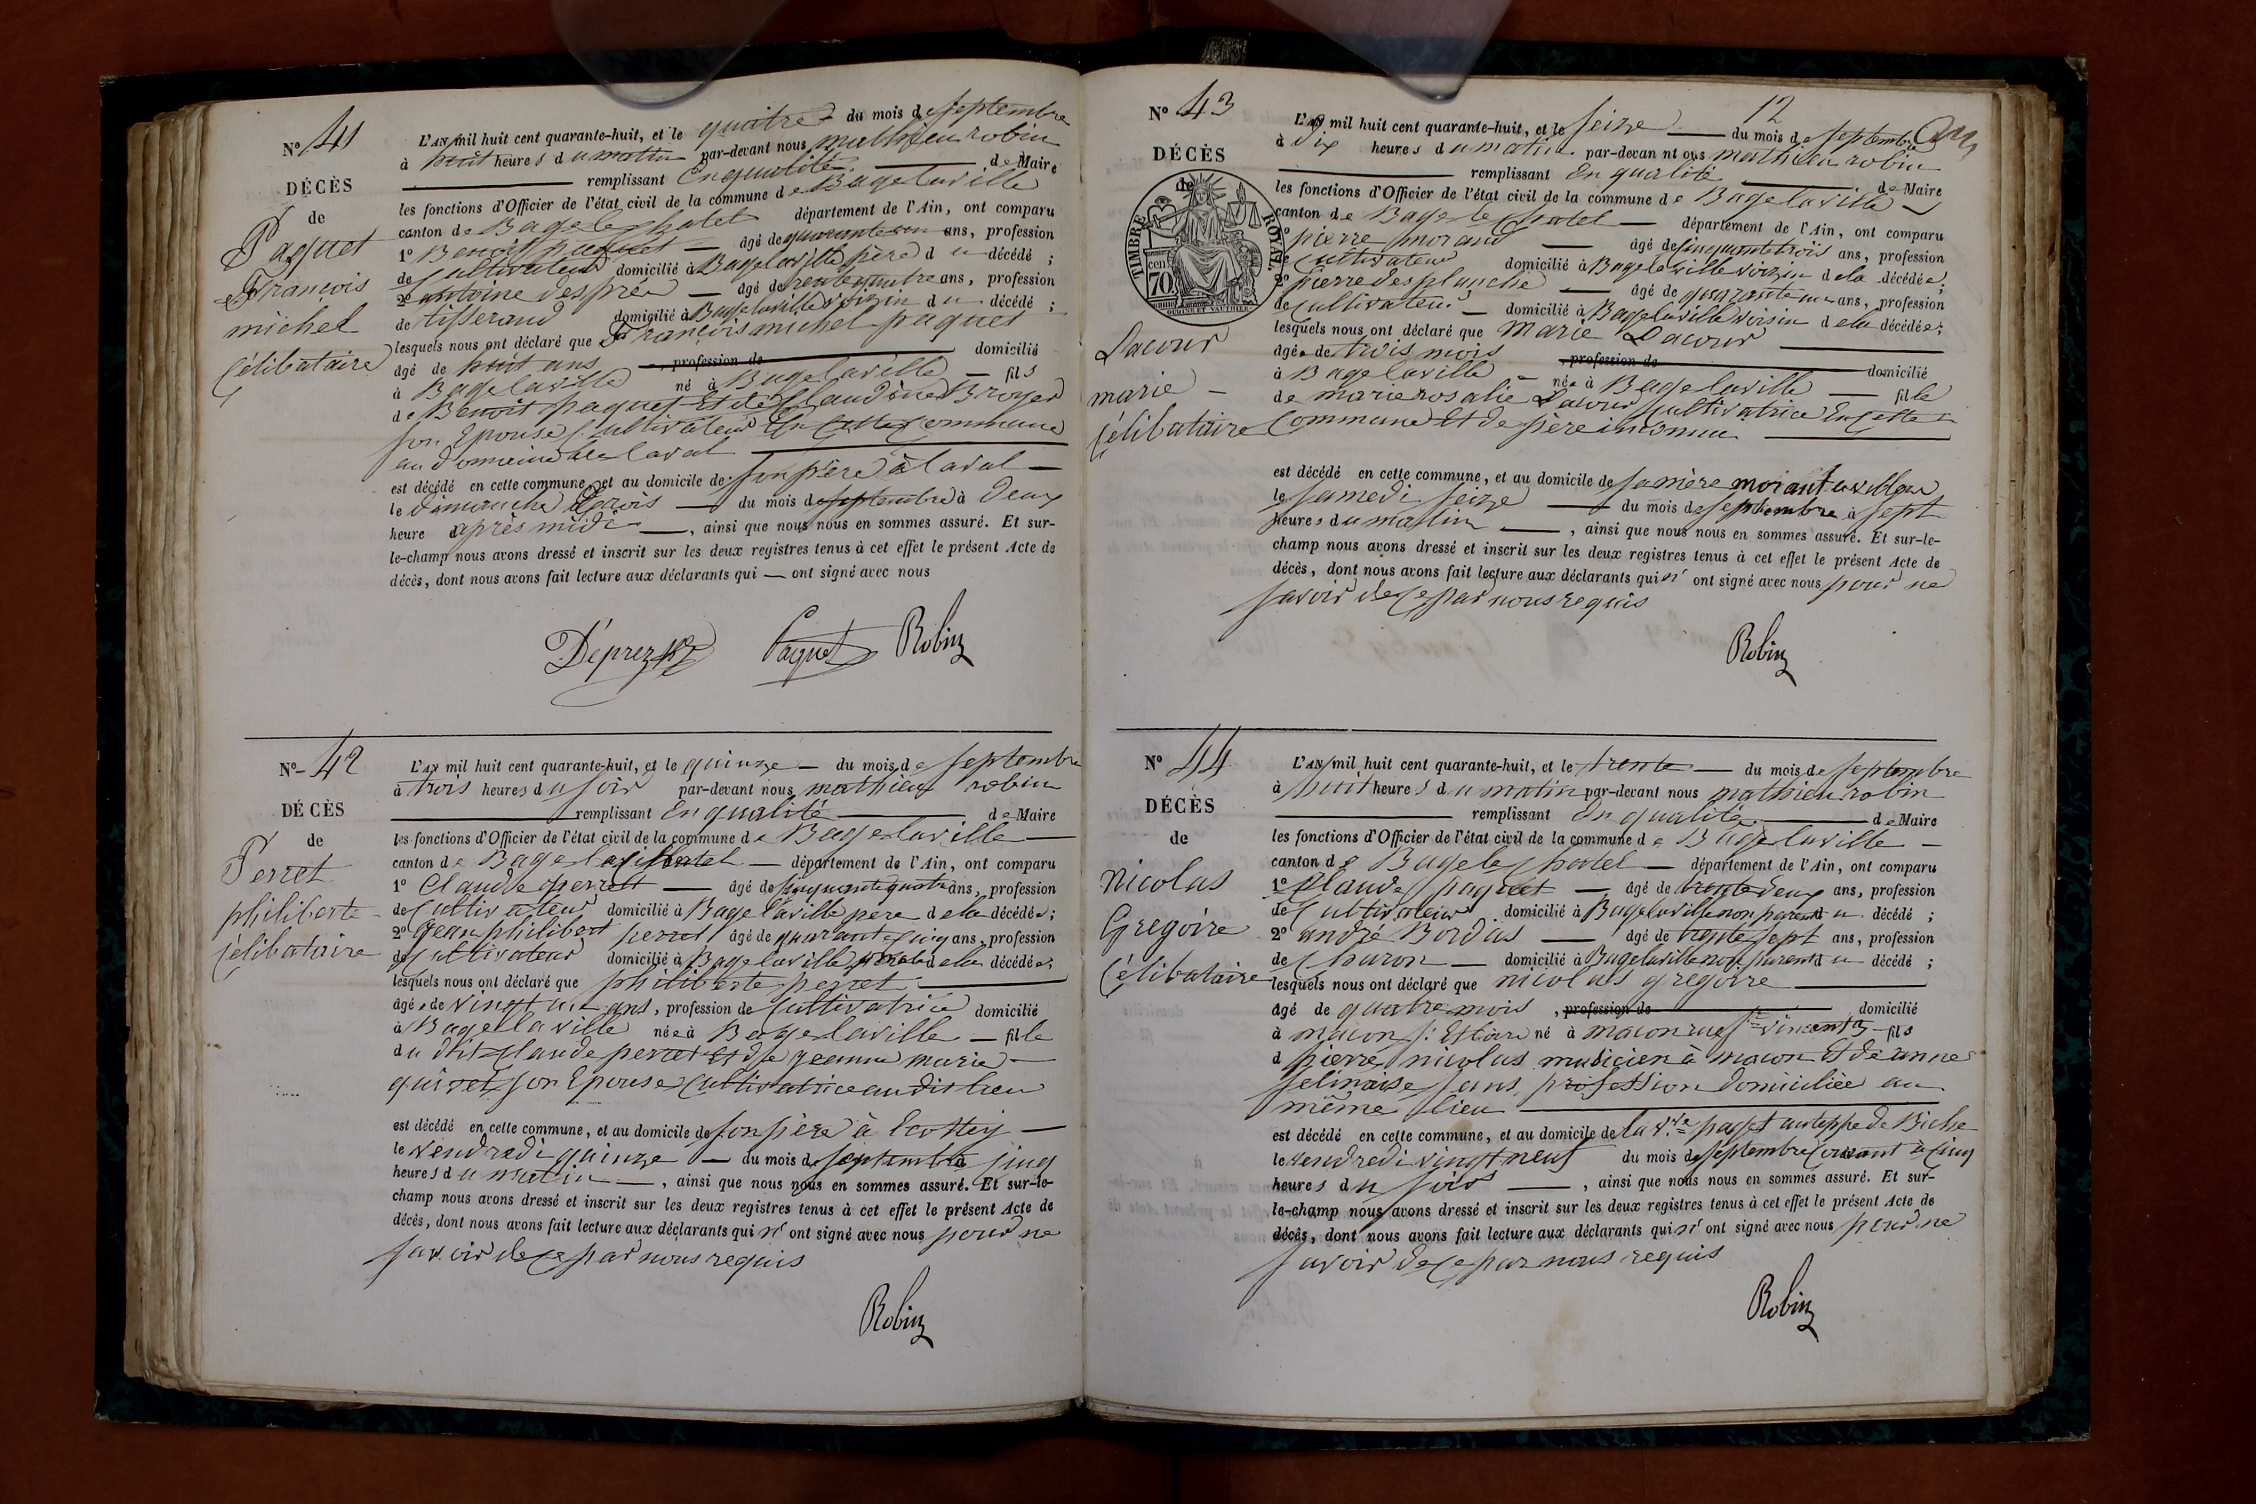 N° 41
DÉCÈS
de
Paquet
François
michel
Célibataire
L'AN mil huit cent quarante-huit, et le quatre du mois de septembre
à huit heures du matin par-devant nous mathieu robin
remplissant En qualité de Maire
les fonctions d'Officier de l'état civil de la commune de Bagelaville
canton de Bage le Chatel département de l'Ain, ont comparu
1° Benoit paquet âgé de quarante un ans, profession
de Cultivateur domicilié à Bagelaville père du décédé ;
2° antoine després âgé de trente quatre ans, profession
de tisserand domicilié à Bagelaville voisin du décédé ;
lesquels nous ont déclaré que François michel paquet
âgé de huit ans , profession de domicilié
à Bagelaville né à Bagelaville fils
de Benoit paquet Et de Claudine Broyer
son Epouse Cultivateur En Cette Commune
au domaine de laval
est décédé en cette commune, et au domicile de son père à laval
le dimanche trois du mois de septembre à deux
heure après midi , ainsi que nous nous en sommes assuré. Et sur-
le-champ nous avons dressé et inscrit sur les deux registres tenus à cet effet le présent Acte de
décès, dont nous avons fait lecture aux déclarants qui — ont signé avec nous
Déprez Paquet Robin
N° 42
DÉCÈS
de
Perret
philiberte
Célibataire
L'AN mil huit cent quarante-huit, et le quinze du mois de septembre
à trois heures du soir par-devant nous mathieu robin
remplissant En qualité de Maire
les fonctions d'Officier de l'état civil de la commune de Bagelaville
canton de Bage le Chatel département de l'Ain, ont comparu
1° Claude perret âgé de cinquante quatre ans, profession
de Cultivateur domicilié à Bagelaville père de la décédée ;
2° Jean philibert perret âgé de quarante cinq ans, profession
de Cultivateur domicilié à Bagelaville de la décédée ;
lesquels nous ont déclaré que philiberte perret
âgée de vingt un ans, profession de Cultivatrice domicilié
à Bagelaville née à Bagelaville fille
du dit Claude perret Et de jeanne marie
qui est son Epouse Cultivatrice au dit lieu
est décédé en cette commune, et au domicile de son père à
le vendredi quinze du mois de septembre cinq
heures du matin , ainsi que nous nous en sommes assuré. Et sur-le-
champ nous avons dressé et inscrit sur les deux registres tenus à cet effet le présent Acte de
décès, dont nous avons fait lecture aux déclarants qui n' ont signé avec nous pour ne
savoir de ce par nous requis
Robin
12
N° 43
DÉCÈS
de
TIMBRE ROYAL
70 cen
Lacour
marie
Célibataire
L'AN mil huit cent quarante-huit, et le seize du mois de septembre
à dix heures du matin par-devan nt ous mathieu robin
remplissant En qualité de Maire
les fonctions d'Officier de l'état civil de la commune de Bagelaville
canton de Bage le Chatel département de l'Ain, ont comparu
1° pierre morand âgé de cinquante trois ans, profession
de Cultivateur domicilié à Bagelaville voizin de la décédée ;
2° pierre desplanche âgé de quarante un ans, profession
de Cultivateur domicilié à Bagelaville voisin de la décédée ;
lesquels nous ont déclaré que Marie Lacour
âgée de trois mois , profession de domicilié
à Bagelaville née à Bagelaville fille
de marie rosalie Lacour Cultivatrice En Cette
Commune Et de père inconnu
est décédé en cette commune, et au domicile de sa mère
le samedi seize du mois de septembre à sept
heures du matin , ainsi que nous nous en sommes assuré. Et sur-le-
champ nous avons dressé et inscrit sur les deux registres tenus à cet effet le présent Acte de
décès, dont nous avons fait lecture aux déclarants qui n' ont signé avec nous pour ne
savoir de ce par nous requis
Robin
N° 44
DÉCÈS
de
Nicolas
Gregoire
Célibataire
L'AN mil huit cent quarante-huit, et le trente du mois de septembre
à huit heures du matin par-devant nous mathieu robin
remplissant En qualité de Maire
les fonctions d'Officier de l'état civil de la commune de Bagelaville
canton de Bage le Chatel département de l'Ain, ont comparu
1° Claude paquet âgé de trente deux ans, profession
de Cultivateur domicilié à Bagelaville non parent du décédé ;
2° andré Bordas âgé de trente sept ans, profession
de Charon domicilié à Bagelaville non parent du décédé ;
lesquels nous ont déclaré que nicolas gregoire
âgé de quatre mois , profession de domicilié
à macon né à macon rue St vincent fils
de pierre nicolas musicien à macon Et de anne
sans profession domiciliée au
même lieu
est décédé en cette commune, et au domicile de la Vve au teppe de Biche
le vendredi vingt neuf du mois de septembre Courant à Cinq
heures du soir , ainsi que nous nous en sommes assuré. Et sur-
le-champ nous avons dressé et inscrit sur les deux registres tenus à cet effet le présent Acte de
décès, dont nous avons fait lecture aux déclarants qui n' ont signé avec nous pour ne
savoir de ce par nous requis
Robin